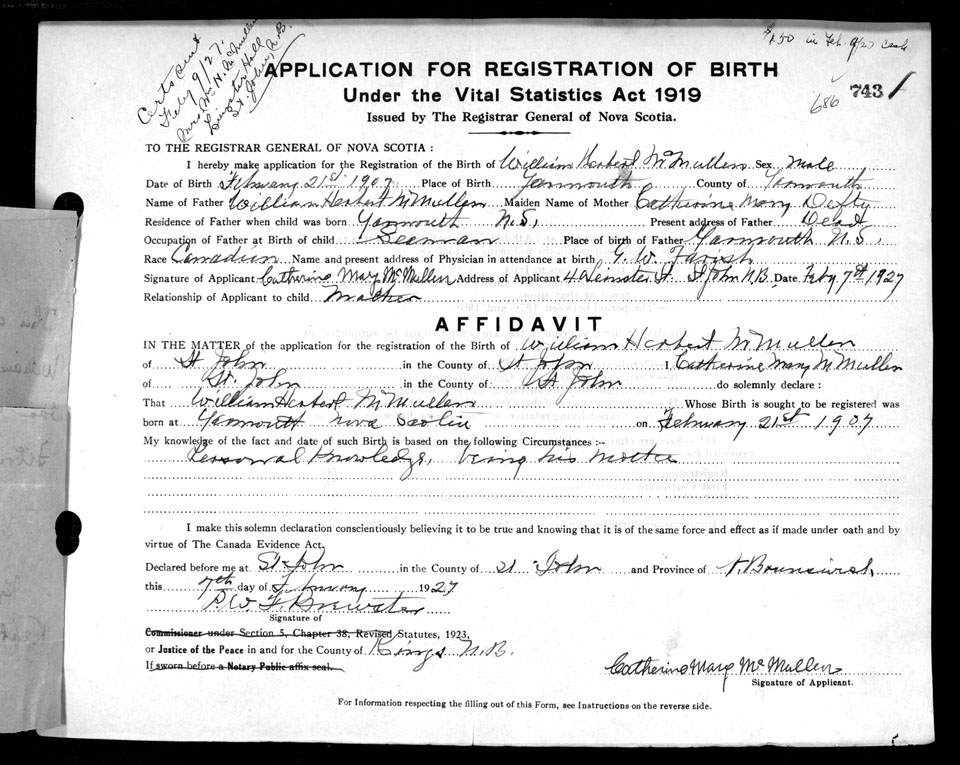 Certs sent
Feby 9/27.
Mrs W. H. McMullen
Leinster Hall
St. John, N.B.
$1.50 in Feb. 9/27 cash
APPLICATION FOR REGISTRATION OF BIRTH
686 743
Under the Vital Statistics Act 1919
Issued by The Registrar General of Nova Scotia.
TO THE REGISTRAR GENERAL OF NOVA SCOTIA :
I hereby make application for the Registration of the Birth of William Herbert McMullen Sex Male
Date of Birth February 21st 1907 Place of Birth Yarmouth County of Yarmouth
Name of Father William Herbert McMullen Maiden Name of Mother Catherine Mary Defty
Residence of Father when child was born Yarmouth N.S. Present address of Father Dead
Occupation of Father at Birth of child Seaman Place of birth of Father Yarmouth N.S.
Race Canadian Name and present address of Physician in attendance at birth G. W. Farish
Signature of Applicant Catherine Mary McMullen Address of Applicant 4 Leinster St. St John N.B. Date Feby 7th 1927
Relationship of Applicant to child Mother
AFFIDAVIT
IN THE MATTER of the application for the registration of the Birth of William Herbert McMullen
of St John in the County of St John I, Catherine Mary McMullen
of St. John in the County of St John do solemnly declare :
That William Herbert McMullen Whose Birth is sought to be registered was
born at Yarmouth Nova Scotia on February 21st 1907
My knowledge of the fact and date of such Birth is based on the following Circumstances :-
Personal Knowledge, being his mother
I make this solemn declaration conscientiously believing it to be true and knowing that it is of the same force and effect as if made under oath and by
virtue of The Canada Evidence Act.
Declared before me at St John in the County of St John and Province of N. Brunswick,
this 7th day of February 1927
Brewster
Signature of
Commissioner under Section 5, Chapter 38, Revised Statutes, 1923,
or Justice of the Peace in and for the County of Kings N.B.
If sworn before a Notary Public affix seal.
Catherine Mary McMullen
Signature of Applicant.
For Information respecting the filling out of this Form, see Instructions on the reverse side.